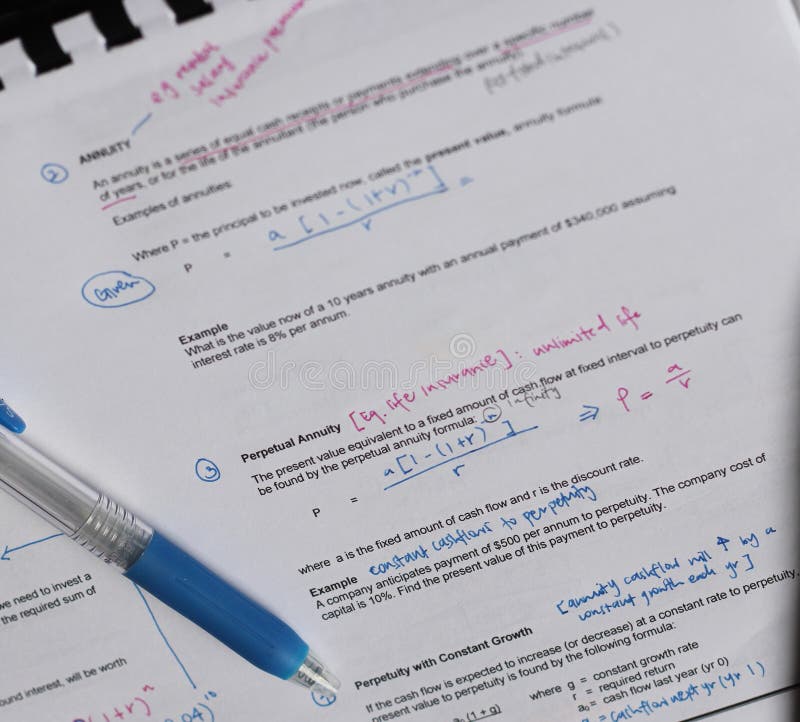 e.g rental
salary
insurance premium
② ANNUITY
An annuity is a series of equal cash receipts or payments extending over a specific number
of years, or for the life of the annuitant (the person who purchase the annuity).
Examples of annuities:
Where P = the principal to be invested now, called the present value, annuity formula:
P = a[1-(1+r)⁻ⁿ] / r =
Given
Example
What is the value now of a 10 years annuity with an annual payment of $340,000 assuming
interest rate is 8% per annum.
③ Perpetual Annuity [Eg. life insurance] : unlimited life
The present value equivalent to a fixed amount of cash flow at fixed interval to perpetuity can
be found by the perpetual annuity formula:
infinity
P = a[1-(1+r)] / r ⇒ P = a / r
where a is the fixed amount of cash flow and r is the discount rate.
Example constant cashflows to perpetuity
A company anticipates payment of $500 per annum to perpetuity. The company cost of
capital is 10%. Find the present value of this payment to perpetuity.
[annuity cashflow will ↑ by a
constant growth each yr]
Perpetuity with Constant Growth
If the cash flow is expected to increase (or decrease) at a constant rate to perpetuity,
present value to perpetuity is found by the following formula:
where g = constant growth rate
r = required return
a₀ = cash flow last year (yr 0)
a₁ = cashflow next yr (yr 1)
a₀ (1 + g)
we need to invest a
the required sum of
ound interest, will be worth
(1+r)ⁿ
.04)¹⁰
dreamstime